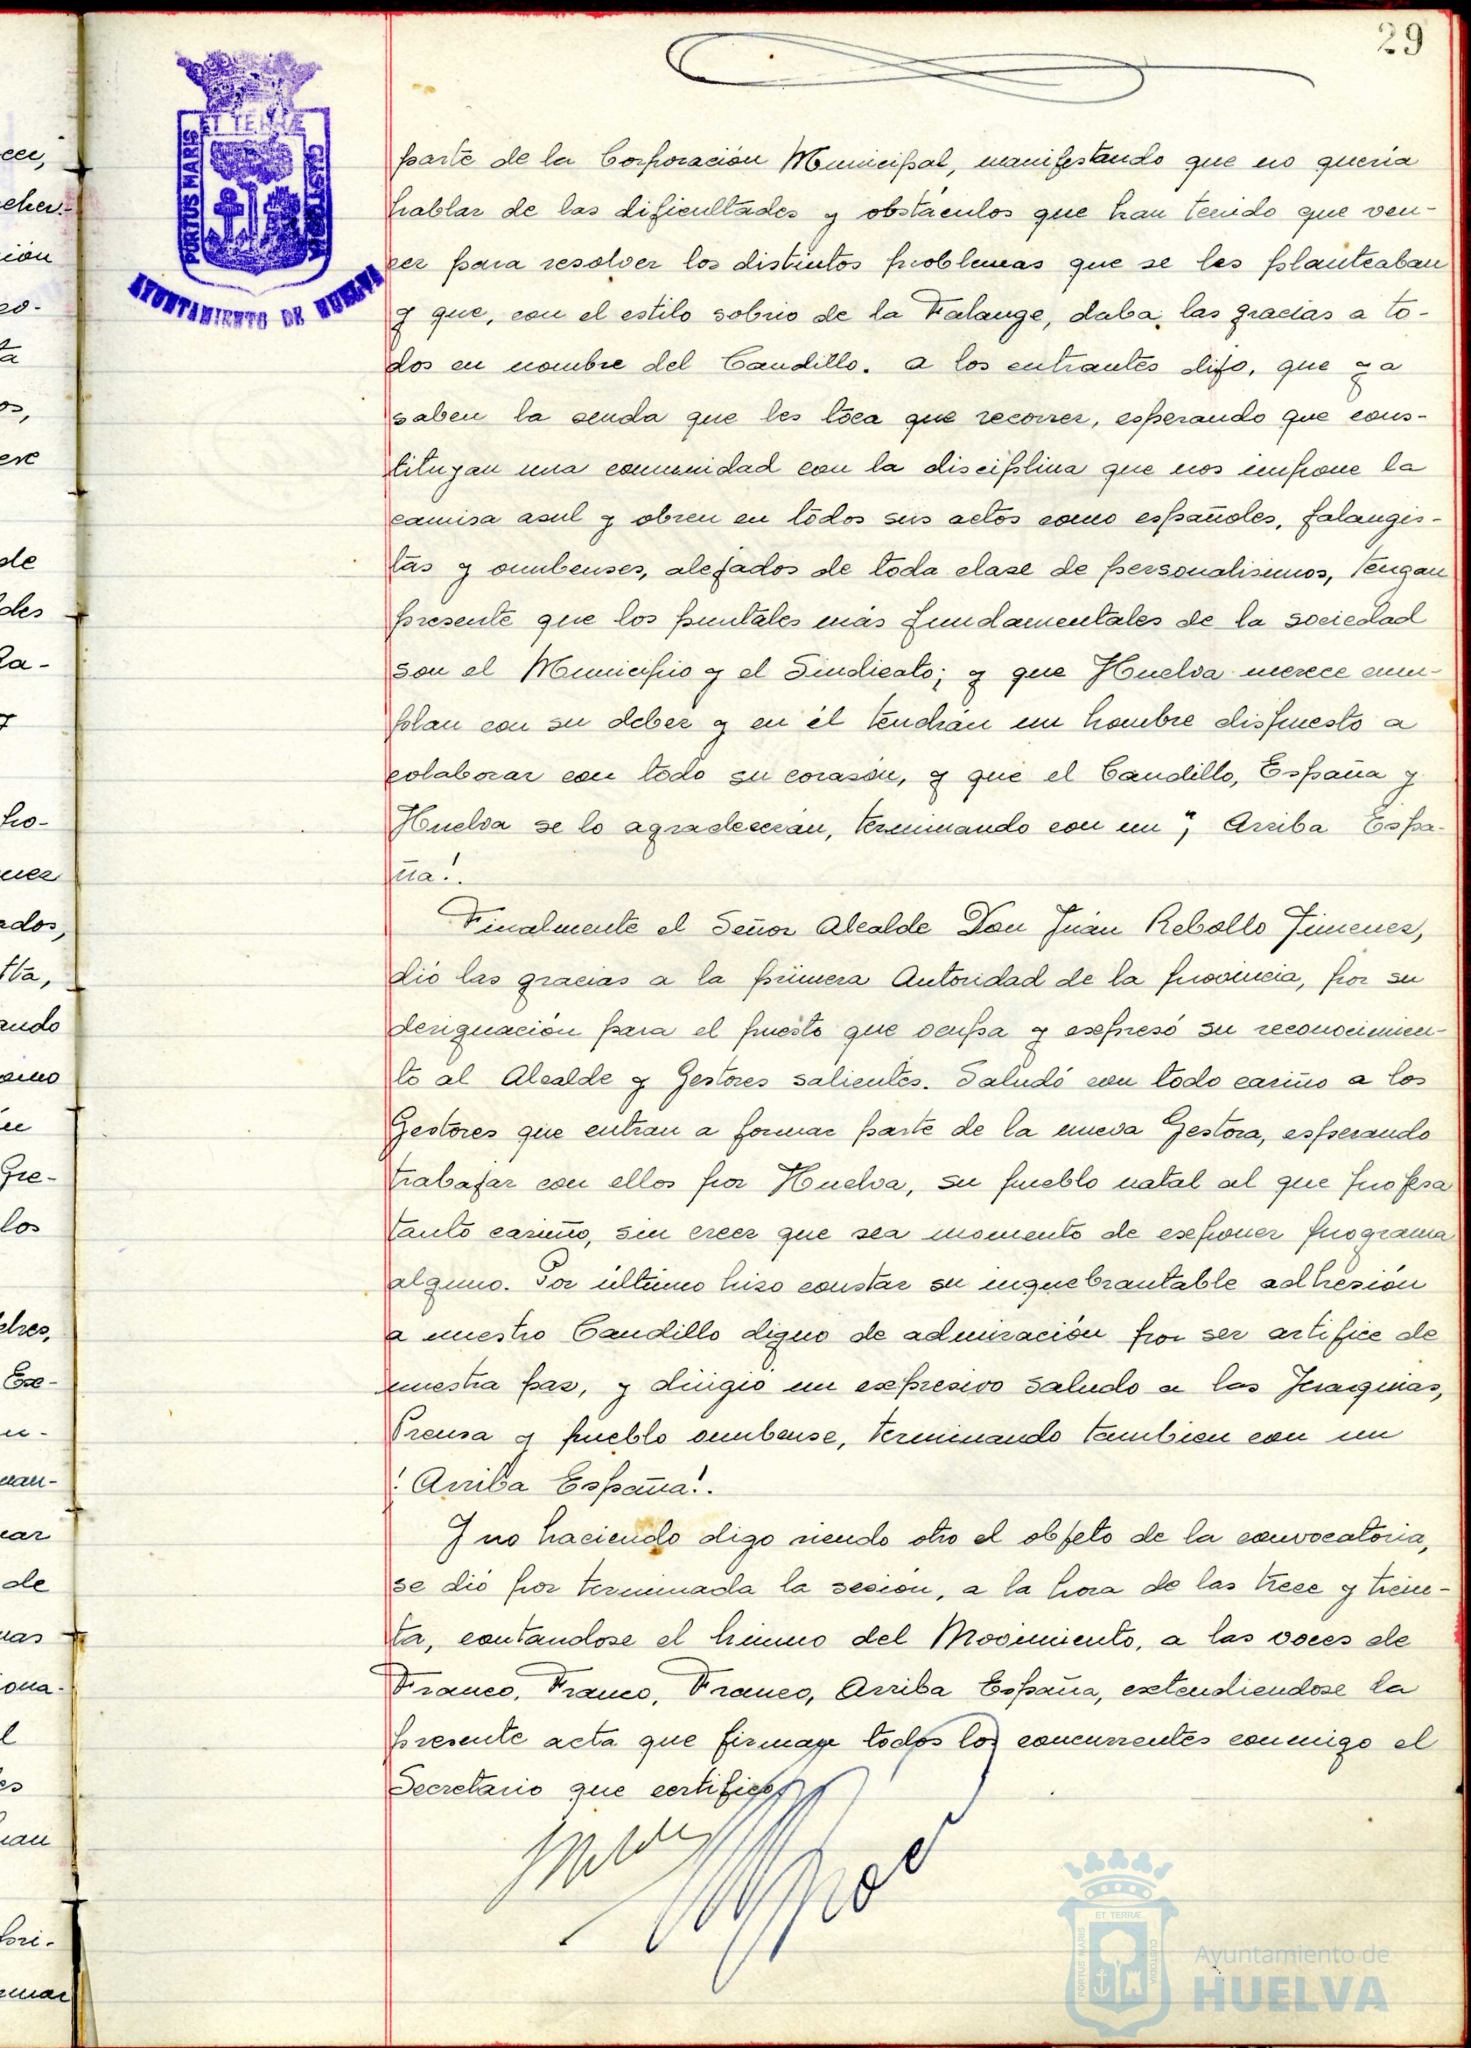 29
ET TERRÆ
PORTUS MARIS
CUSTODIA
AYUNTAMIENTO DE HUELVA
parte de la Corporación Municipal, manifestando que no quería
hablar de las dificultades y obstáculos que han tenido que ven-
cer para resolver los distintos problemas que se les planteaban
y que, con el estilo sobrio de la Falange, daba las gracias a to-
dos en nombre del Caudillo. a los entrantes dijo, que ya
saben la senda que les toca que recorrer, esperando que cons-
tituyan una comunidad con la disciplina que nos impone la
camisa asul y obren en todos sus actos como españoles, falangis-
tas y onubenses, alejados de toda clase de personalismos, tengan
presente que los puntales más fundamentales de la sociedad
son el Municipio y el Sindicato; y que Huelva merece cum-
plan con su deber y en él tendrán un hombre dispuesto a
colaborar con todo su corasón, y que el Caudillo, España y
Huelva se lo agradecerán, terminando con un "¡ Arriba Espa-
ña!.
Finalmente el Señor Alcalde Don Juán Rebollo Jimenez,
dió las gracias a la primera Autoridad de la provincia, por su
designación para el puesto que ocupa y expresó su reconocimien-
to al Alcalde y Gestores salientes. Saludó con todo cariño a los
Gestores que entran a formar parte de la nueva Gestora, esperando
trabajar con ellos por Huelva, su pueblo natal al que profesa
tanto cariño, sin creer que sea momento de exponer programa
alguno. Por último hizo constar su inquebrantable adhresión
a nuestro Caudillo digno de admiración por ser artifice de
nuestra paz, y dirigió un expresivo saludo a las Jerarquias,
Prensa y pueblo onubense, terminando tambien con un
! Arriba España!.
Y no haciendo digo siendo otro el objeto de la convocatoria,
se dió por terminada la sesión, a la hora de las trece y trein-
ta, cantandose el himno del Movimiento, a las voces de
Franco, Franco, Franco, Arriba España, extendiendose la
presente acta que firman todos los concurrentes conmigo el
Secretario que certifico.
ET TERRÆ
PORTUS MARIS
CUSTODIA
Ayuntamiento de
HUELVA